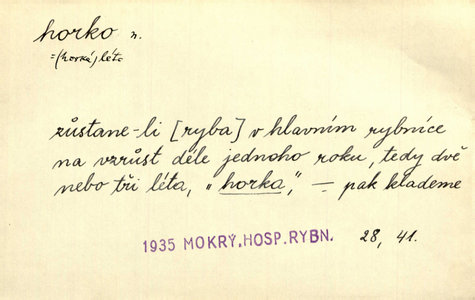 horko n.
=(horká) léta
zůstane-li [ryba] v hlavním rybníce
na vzrůst déle jednoho roku, tedy dvě
nebo tři léta, „horka", – pak klademe
1935 MOKRÝ, HOSP. RYBN. 28, 41.